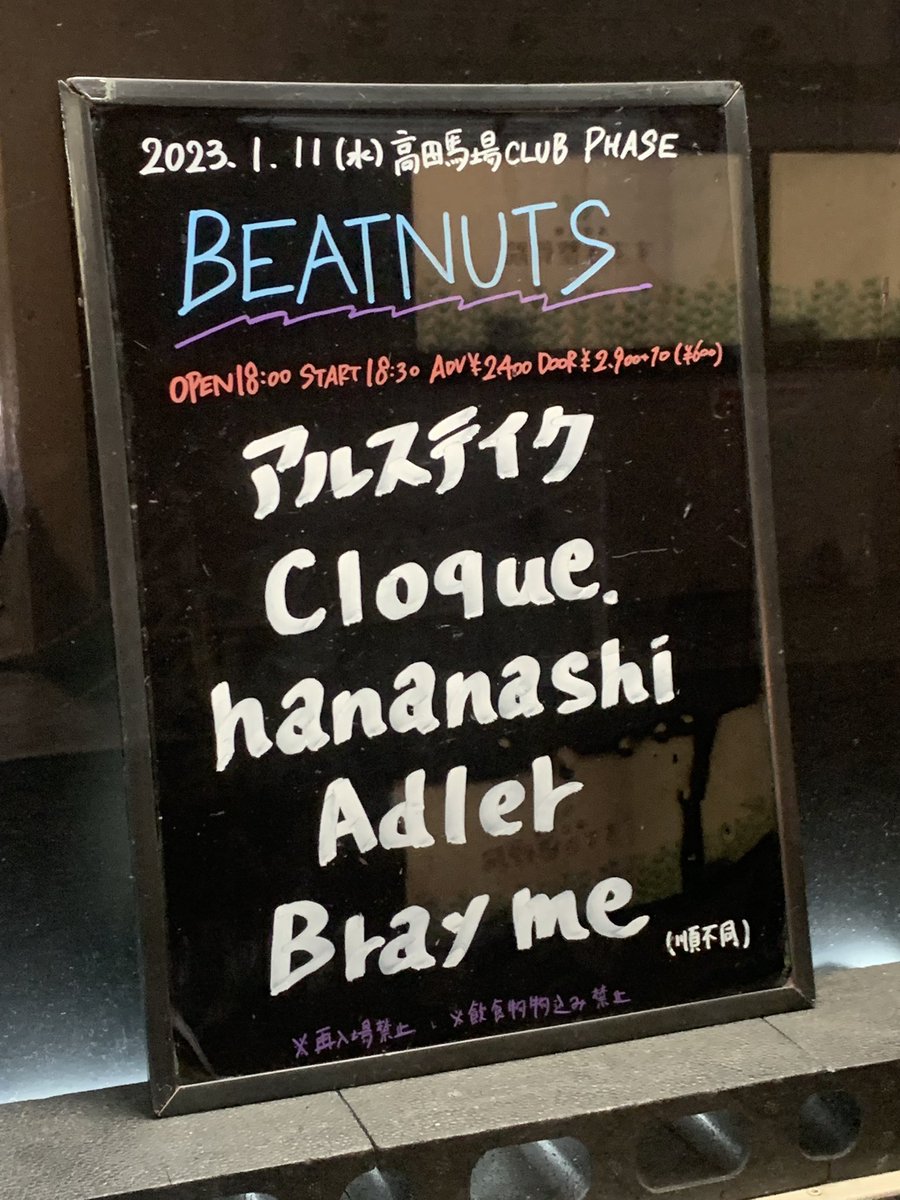 2023.1.11(水)高田馬場CLUB PHASE
BEATNUTS
OPEN18:00 START18:30 ADV¥2400 DOOR¥2.900+1D(¥600)
アルステイク
Cloque.
hananashi
Adler
Bray me
(順不同)
※再入場禁止 ※飲食物物込み禁止